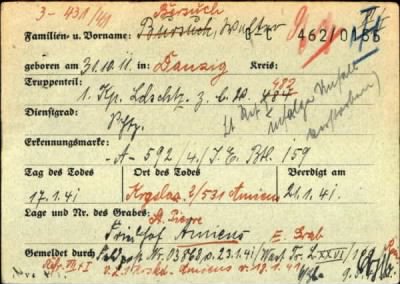 3-431/41 Bursuch
Familien- u. Vorname: Bursuch, Walter 462/0155
geboren am 31.10.11 in: Danzig Kreis:
Truppenteil:
1. Kp. Ldschtz. z. b. V. 487
Dienstgrad:
Schtz.
infolge Unfall
verstorben
Erkennungsmarke:
-A- 592/4./I.E. Btl. 159
Tag des Todes Ort des Todes Beerdigt am
17.1.41 Krgslaz. 2/531 Amiens 21.1.41.
Lage und Nr. des Grabes: St. Pierre
Friedhof Amiens E. Grab
Gemeldet durch: Feldpost Nr. 03862 v. 23.1.41/
Amiens v. 18.1.41